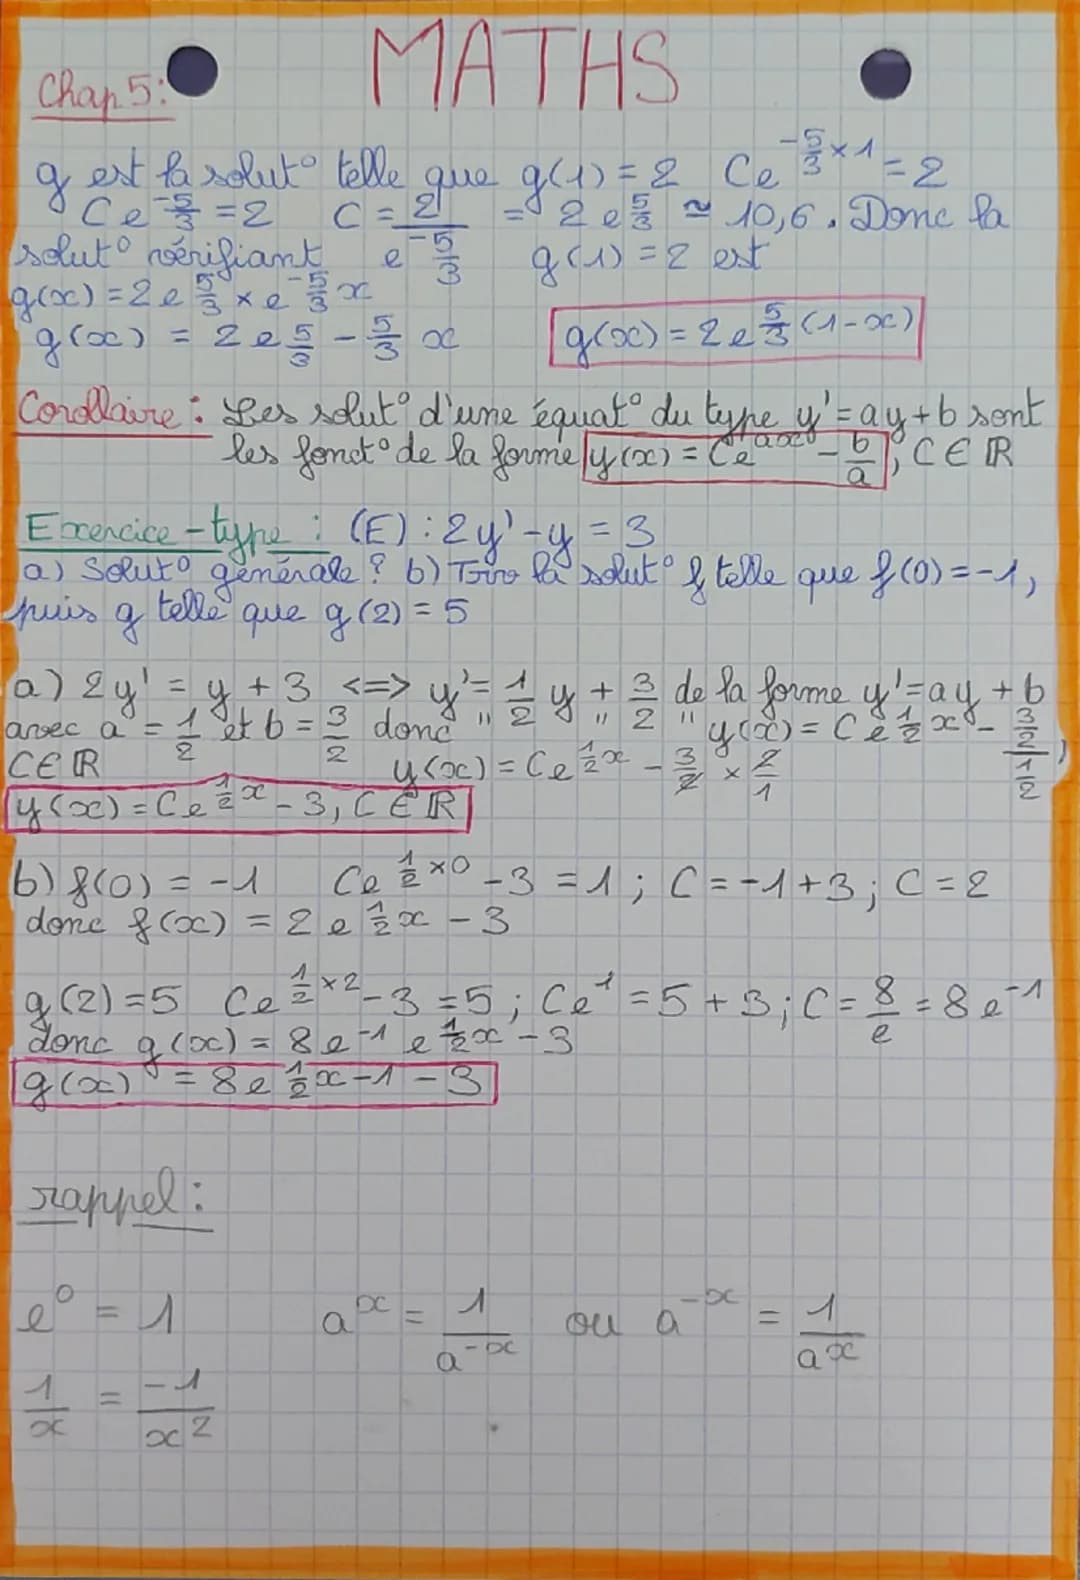 MATHS
Chap 5:
g est la solut° telle que g(1) = 2 Ce^{-5/3 × 1} = 2
Ce^{-5/3} = 2 C = 2/e^{-5/3} = 2e^{5/3} ≃ 10,6. Donc la
solut° vérifiant g(1) = 2 est
g(x) = 2e^{5/3} × e^{-5/3 x}
g(x) = 2e^{5/3 - 5/3 x} g(x) = 2e^{5/3 (1-x)}
Corollaire : Les solut° d'une équat° du type y' = ay + b sont
les fonct° de la forme y(x) = Ce^{ax} - b/a, C ∈ ℝ
Exercice-type : (E) : 2y' - y = 3
a) Solut° générale ? b) la solut° f telle que f(0) = -1,
puis g telle que g(2) = 5
a) 2y' = y + 3 <=> y' = 1/2 y + 3/2 de la forme y' = ay + b
avec a = 1/2 et b = 3/2 donc " " " y(x) = Ce^{1/2 x} - (3/2)/(1/2),
C ∈ ℝ y(x) = Ce^{1/2 x} - 3/2 × 2/1
y(x) = Ce^{1/2 x} - 3, C ∈ ℝ
b) f(0) = -1 Ce^{1/2 × 0} - 3 = 1 ; C = -1 + 3 ; C = 2
donc f(x) = 2e^{1/2 x} - 3
g(2) = 5 Ce^{1/2 × 2} - 3 = 5 ; Ce^1 = 5 + 3 ; C = 8/e = 8e^{-1}
donc g(x) = 8e^{-1} e^{1/2 x} - 3
g(x) = 8e^{1/2 x - 1} - 3
rappel :
e^0 = 1 a^x = 1/a^{-x} ou a^{-x} = 1/a^x
1/x = -1/x^2